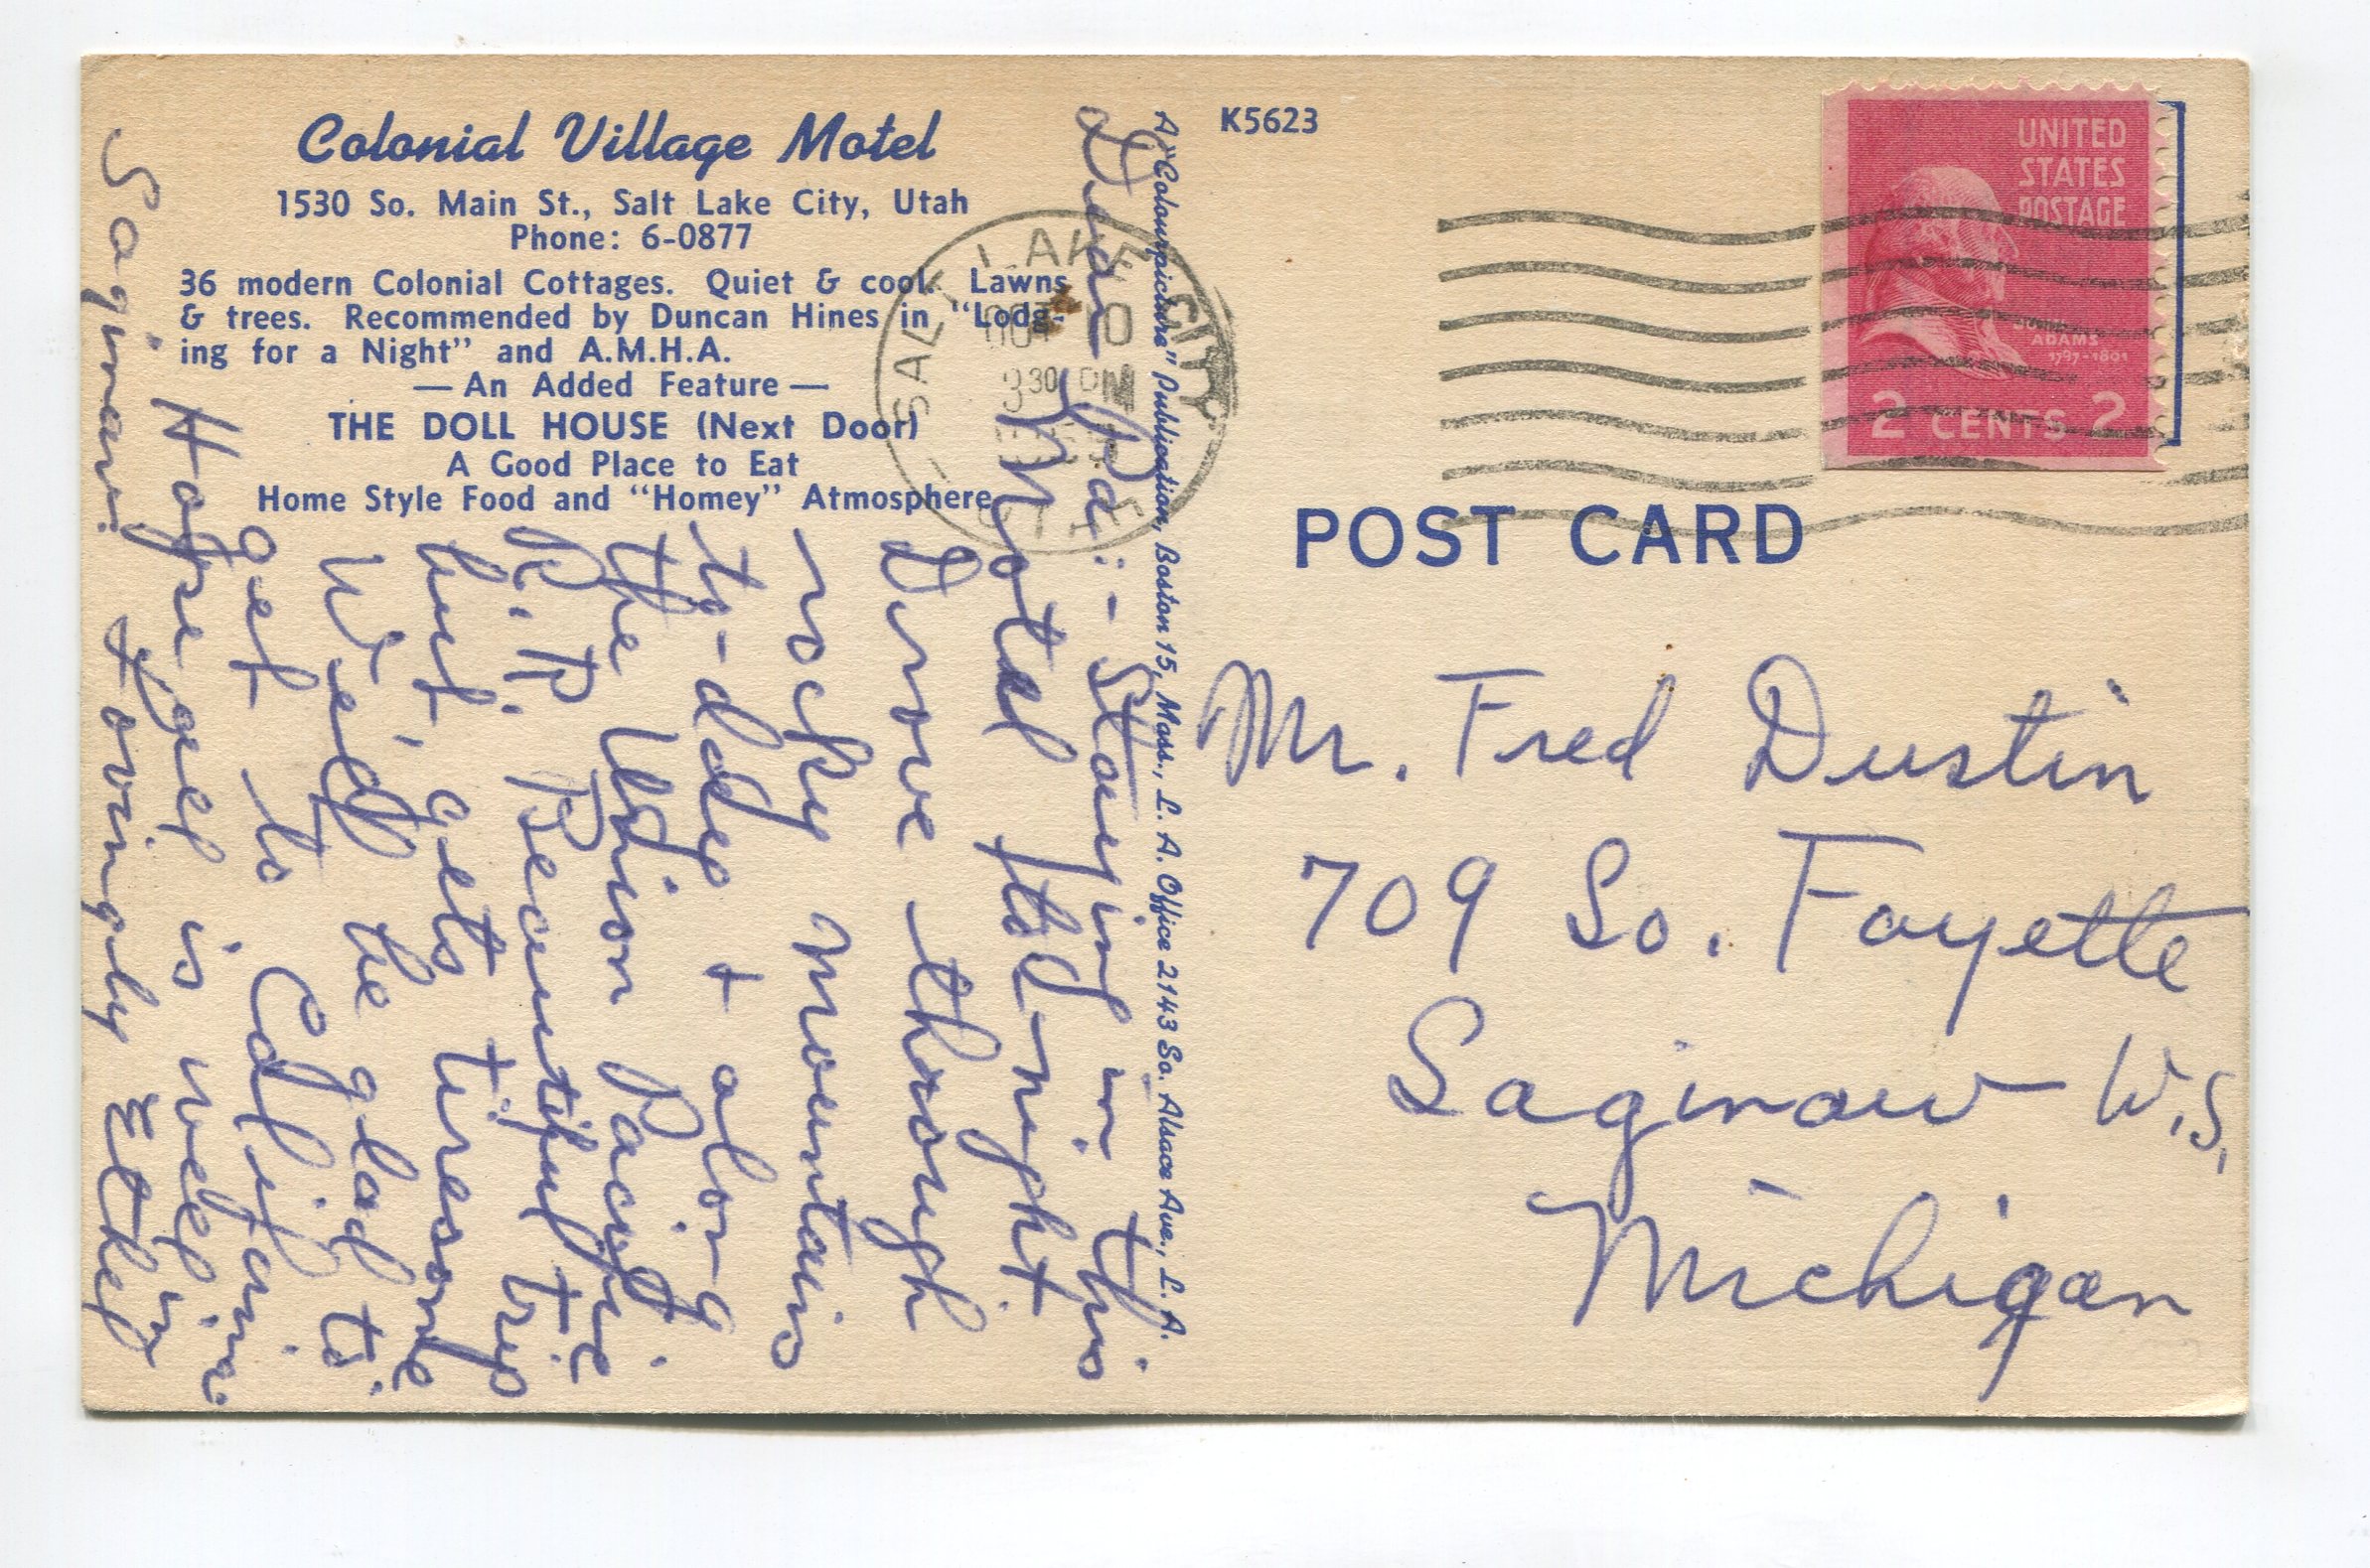 Colonial Village Motel
1530 So. Main St., Salt Lake City, Utah
Phone: 6-0877
36 modern Colonial Cottages. Quiet & cool. Lawns
& trees. Recommended by Duncan Hines in "Lodg-
ing for a Night" and A.M.H.A.
—An Added Feature—
THE DOLL HOUSE (Next Door)
A Good Place to Eat
Home Style Food and "Homey" Atmosphere
Dear Pa:- Staying in this
Motel to-night.
Drove through
rocky mountains
to-day & along
the Union Pacific
R.R. Beautiful trip
but gets tiresome
We'll be glad to
get to Calif.
Hope Ygel is well in
Saginaw. Lovingly Ethel
A "Colourpicture" Publication, Boston 15, Mass., L. A. Office 2143 So. Alsace Ave., L. A.
K5623
SALT LAKE CITY
OCT 10
330 PM
UTAH
UNITED
STATES
POSTAGE
JOHN
ADAMS
1797-1801
2 CENTS 2
POST CARD
Mr. Fred Dustin
709 So. Fayette
Saginaw W.S.
Michigan